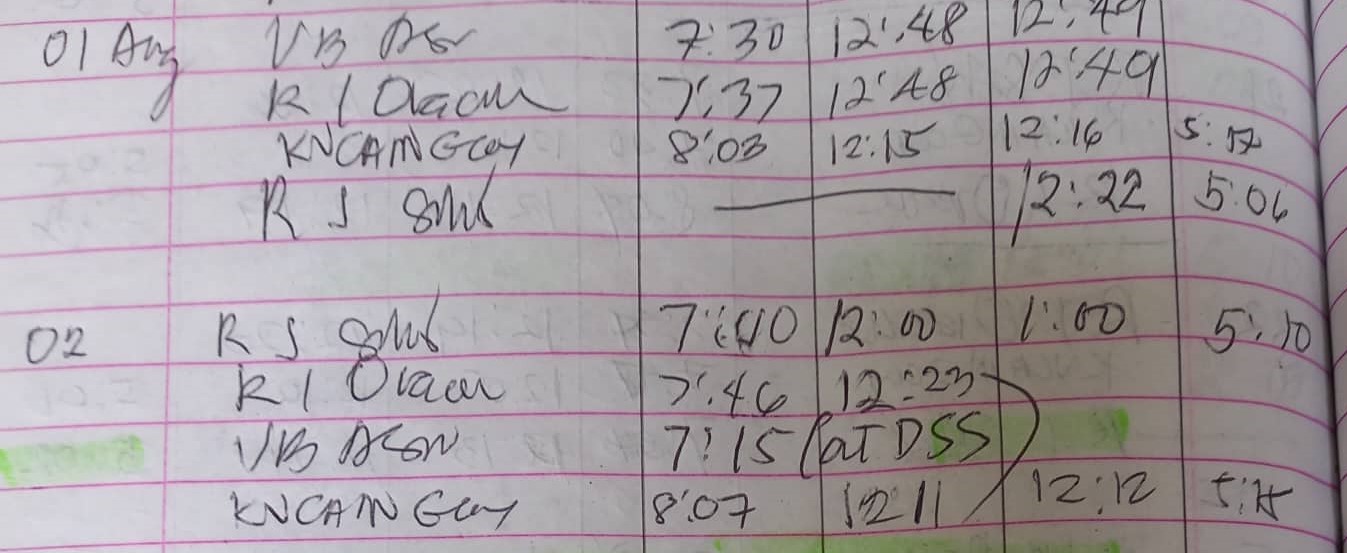 01 Aug VB 7:30 12:48 12:49
R I 7:37 12:48 12:49
KNCAMNGCAY 8:03 12:15 12:16 5:17
R J 12:22 5:06
02 R J 7:40 12:00 1:00 5:10
R I 7:46 12:23
VB 7:15 (at DSS)
KNCAMNGCAY 8:07 12 11 12:12 5:15